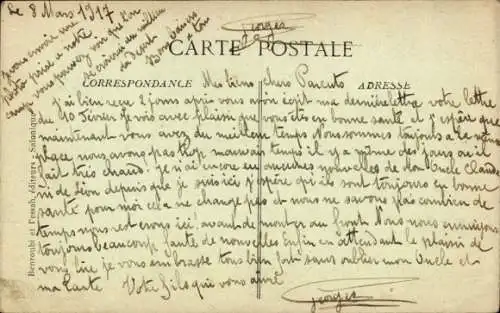 Le 8 Mars 1917
je vous envoie une
photo prise a notre
camp vous pourrez voir que l'on
se croirait au milieu
du désert
Bonjour
a tous
Georges
CARTE POSTALE
CORRESPONDANCE
ADRESSE
Mes biens chers Parents
j'ai bien reçu 2 jours après vous avoir écrit ma dernière lettre votre lettre
du 10 Février je vois avec plaisir que vous êtes en bonne santé et j'espère que
maintenant vous avez du meilleur temps Nous sommes toujours a la même
place nous avons pas trop mauvais temps il y a même des jours ou il
fait très chaud. je n'ai encore eu aucunes nouvelles de mon Oncle Claude
ni de Léon depuis que je suis ici j'espère qui ils sont toujours en bonne
santé pour moi cela ne change pas et nous ne savons pas combien de
temps nous resterons ici avant de monter au front Nous nous ennuyons
toujours beaucoup faute de nouvelles Enfin en attendant le plaisir de
vous lire je vous embrasse tous bien fort sans oublier mon Oncle et
ma Tante Votre fils qui vous aime
Georges
Benroubi et Pessah, éditeurs - Salonique